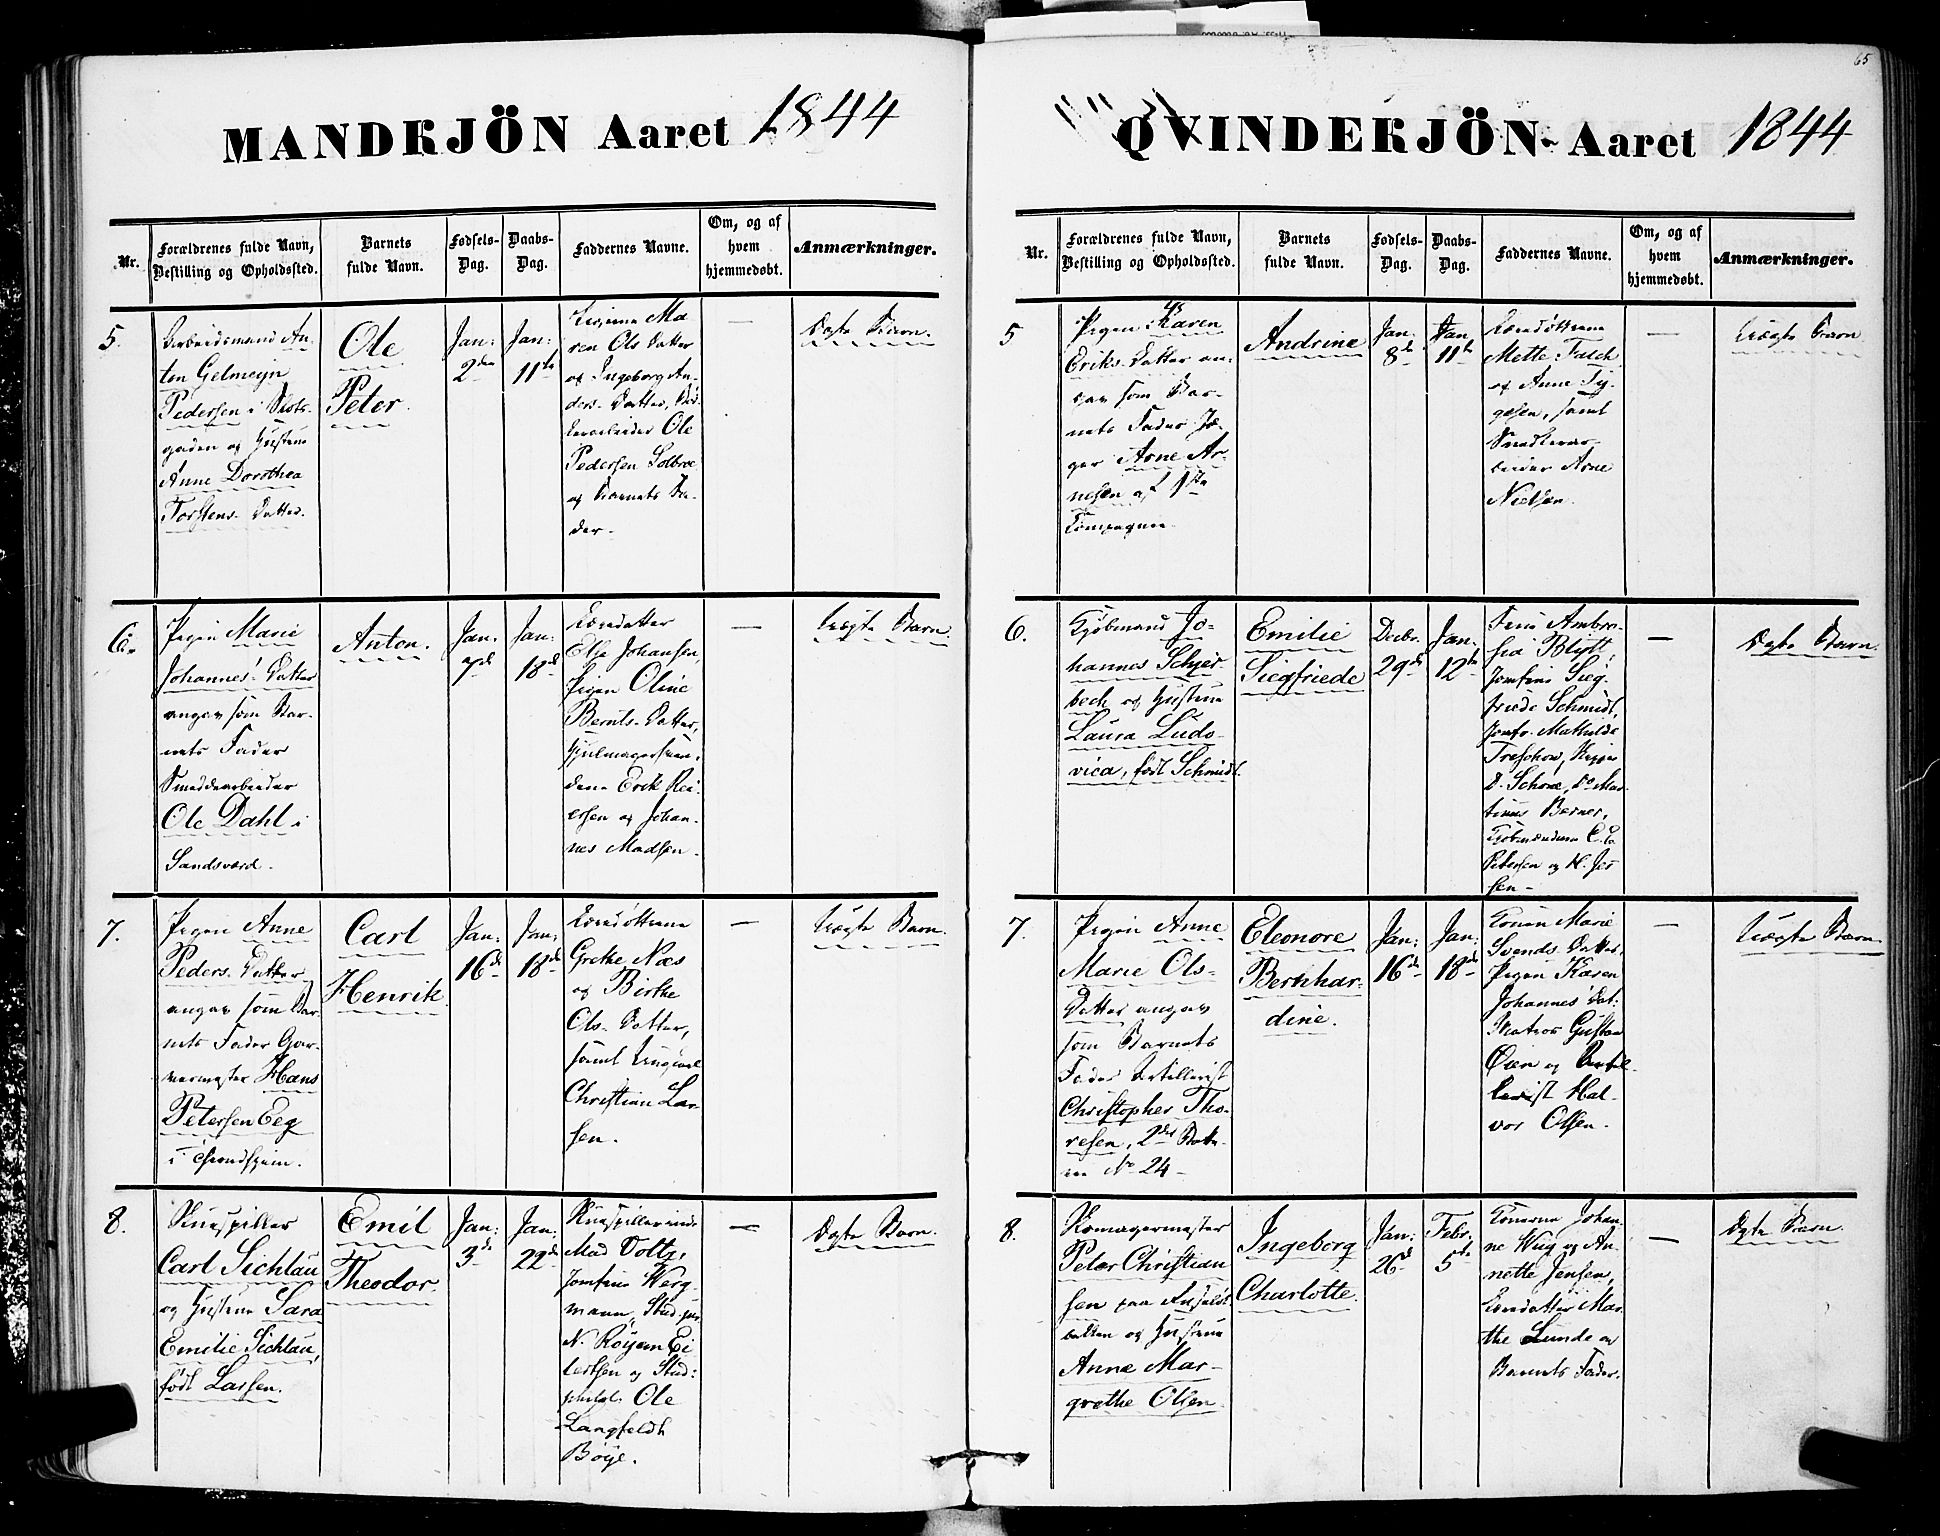 65
MANDKJÖN Aaret 1844
Nr.
Forældrenes fulde Navn,
Bestilling og Opholdssted.
Barnets
fulde Navn.
Fødsels-
Dag.
Daabs-
Dag.
Faddernes Navne.
Om, og af
hvem
hjemmedøbt.
Anmærkninger.
5.
Arbeidsmand An-
ton Gelmeyn
Pedersen i Slots-
gaden og Hustru
Anne Dorothea
Torstens-Datter.
Ole
Peter.
Jan:
2den
Jan:
11te
Ma-
ren Ols Datter
og Ingeborg An-
ders-Datter,
Ole
Pedersen Solbræ
og Barnets Fa-
der.
—
Ægte Barn.
6.
Pigen Marie
Johannes' Datter
angav som Bar-
nets Fader
Smeddearbeider
Ole Dahl i
Sandsværd.
Anton.
Jan:
7de
Jan:
18de
Else Johansen,
Pigen Oline
Bernts-Datter,
Hjulmagersven-
dene Erik Rei-
ersen og Johan-
nes Madsen.
—
Uægte Barn.
7.
Pigen Anne
Peders-Datter
angav som Bar-
nets Fader Gar-
vermester Hans
Petersen Eeg
i Trondhjem.
Carl
Henrik.
Jan:
16de
Jan:
18de
Grethe Næs
og Birthe
Ols-Datter,
samt Ungkarl
Christian Lar-
sen.
—
Uægte Barn.
8.
Skuespiller
Carl Sichlau
og Hustru Sara
Emilie Sichlau,
født Larsen.
Emil
Theodor.
Jan:
3de
Jan:
22de
Skuespillerinde
Mad Voltz,
Jomfrue Werg-
mann, Stud. jur.
N. Röyem Ei-
lertsen og Stud:
Ole
Langfeldt
Böye.
—
Ægte Barn.
QVINDEKJÖN Aaret 1844
Nr.
Forældrenes fulde Navn,
Bestilling og Opholdssted.
Barnets
fulde Navn.
Fødsels-
Dag.
Daabs-
Dag.
Faddernes Navne.
Om, og af
hvem
hjemmedøbt.
Anmærkninger.
5
Pigen Karen
Eriks-Datter an-
gav som Bar-
nets Fader Jæ-
ger Arne Ar-
nesen af 1ste
Compagnie
Andrine
Jan:
8de
Jan
11te
Mette Falch
og Anne Ty-
gesen, samt
Snedkerar-
beider Arne
Nielsen.
—
Uægte Barn
6.
Kjøbmand Jo-
hannes Schjer-
bech og Hustru
Laura Ludo-
vica, født Schmidt.
Emilie
Siegfriede
Decbr.
29de
Jan:
12te
Frue Ambro-
sia Blytt,
Jomfrue Sieg-
friede Schmidt,
Jomfr. Mathilde
Treschow,
D. Schøne, Do Mar-
tinus Berner,
Kjøbmændene C. E.
Petersen og H. Jes-
sen-
—
Ægte Barn.
7.
Pigen Anne
Marie Ols-
Datter angav
som Barnets
Fader Artillerist
Christopher Tho-
resen, 2det Batte-
rie No 24
Eleonore
Bernhar-
dine.
Jan:
16de
Jan:
18de
Konen Marie
Svends-Datter,
Pigen Karen
Johannes' Dat:
Matros Gustav
Øien og Artil-
lerist Hal-
vor Olsen.
—
Uægte Barn
8.
Komagermester
Peter Christian-
sen paa Anstalt-
bakken og Hustrue
Anne Mar-
grethe Olsen
Ingeborg
Charlotte.
Jan:
26de
Febr:
5te
Konerne Johan-
ne Wug og An-
nette Jensen,
Mar-
the Lunde og
Barnets Fader.
—
Ægte Barn.